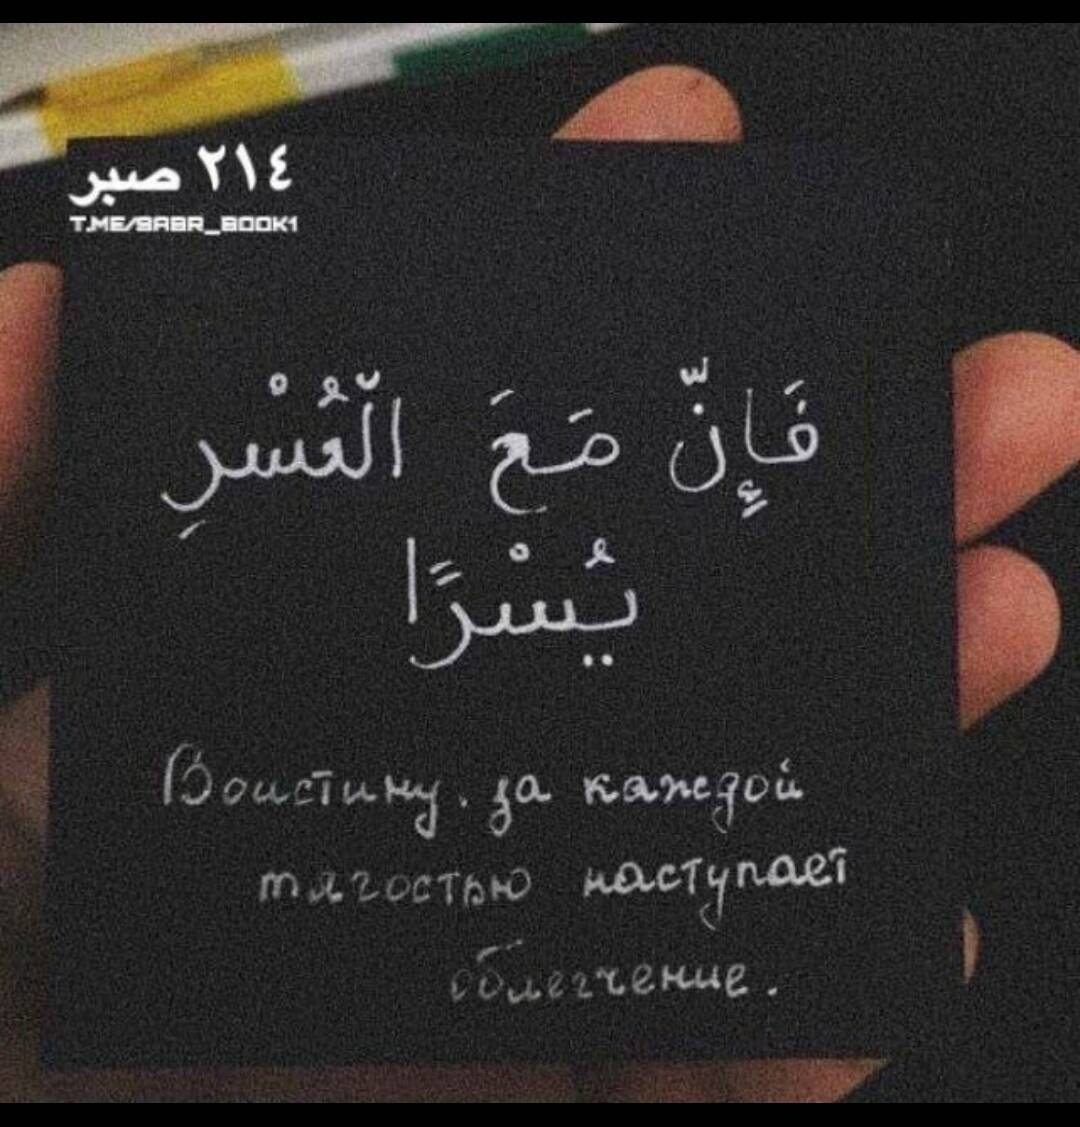 ٢١٤ صبر
T.ME/SABR_BOOK1
فَإِنّ مَعَ الّعُسْرِ
يُسْرًا
Воистину. за каждой
тягостью наступает
облегчение.